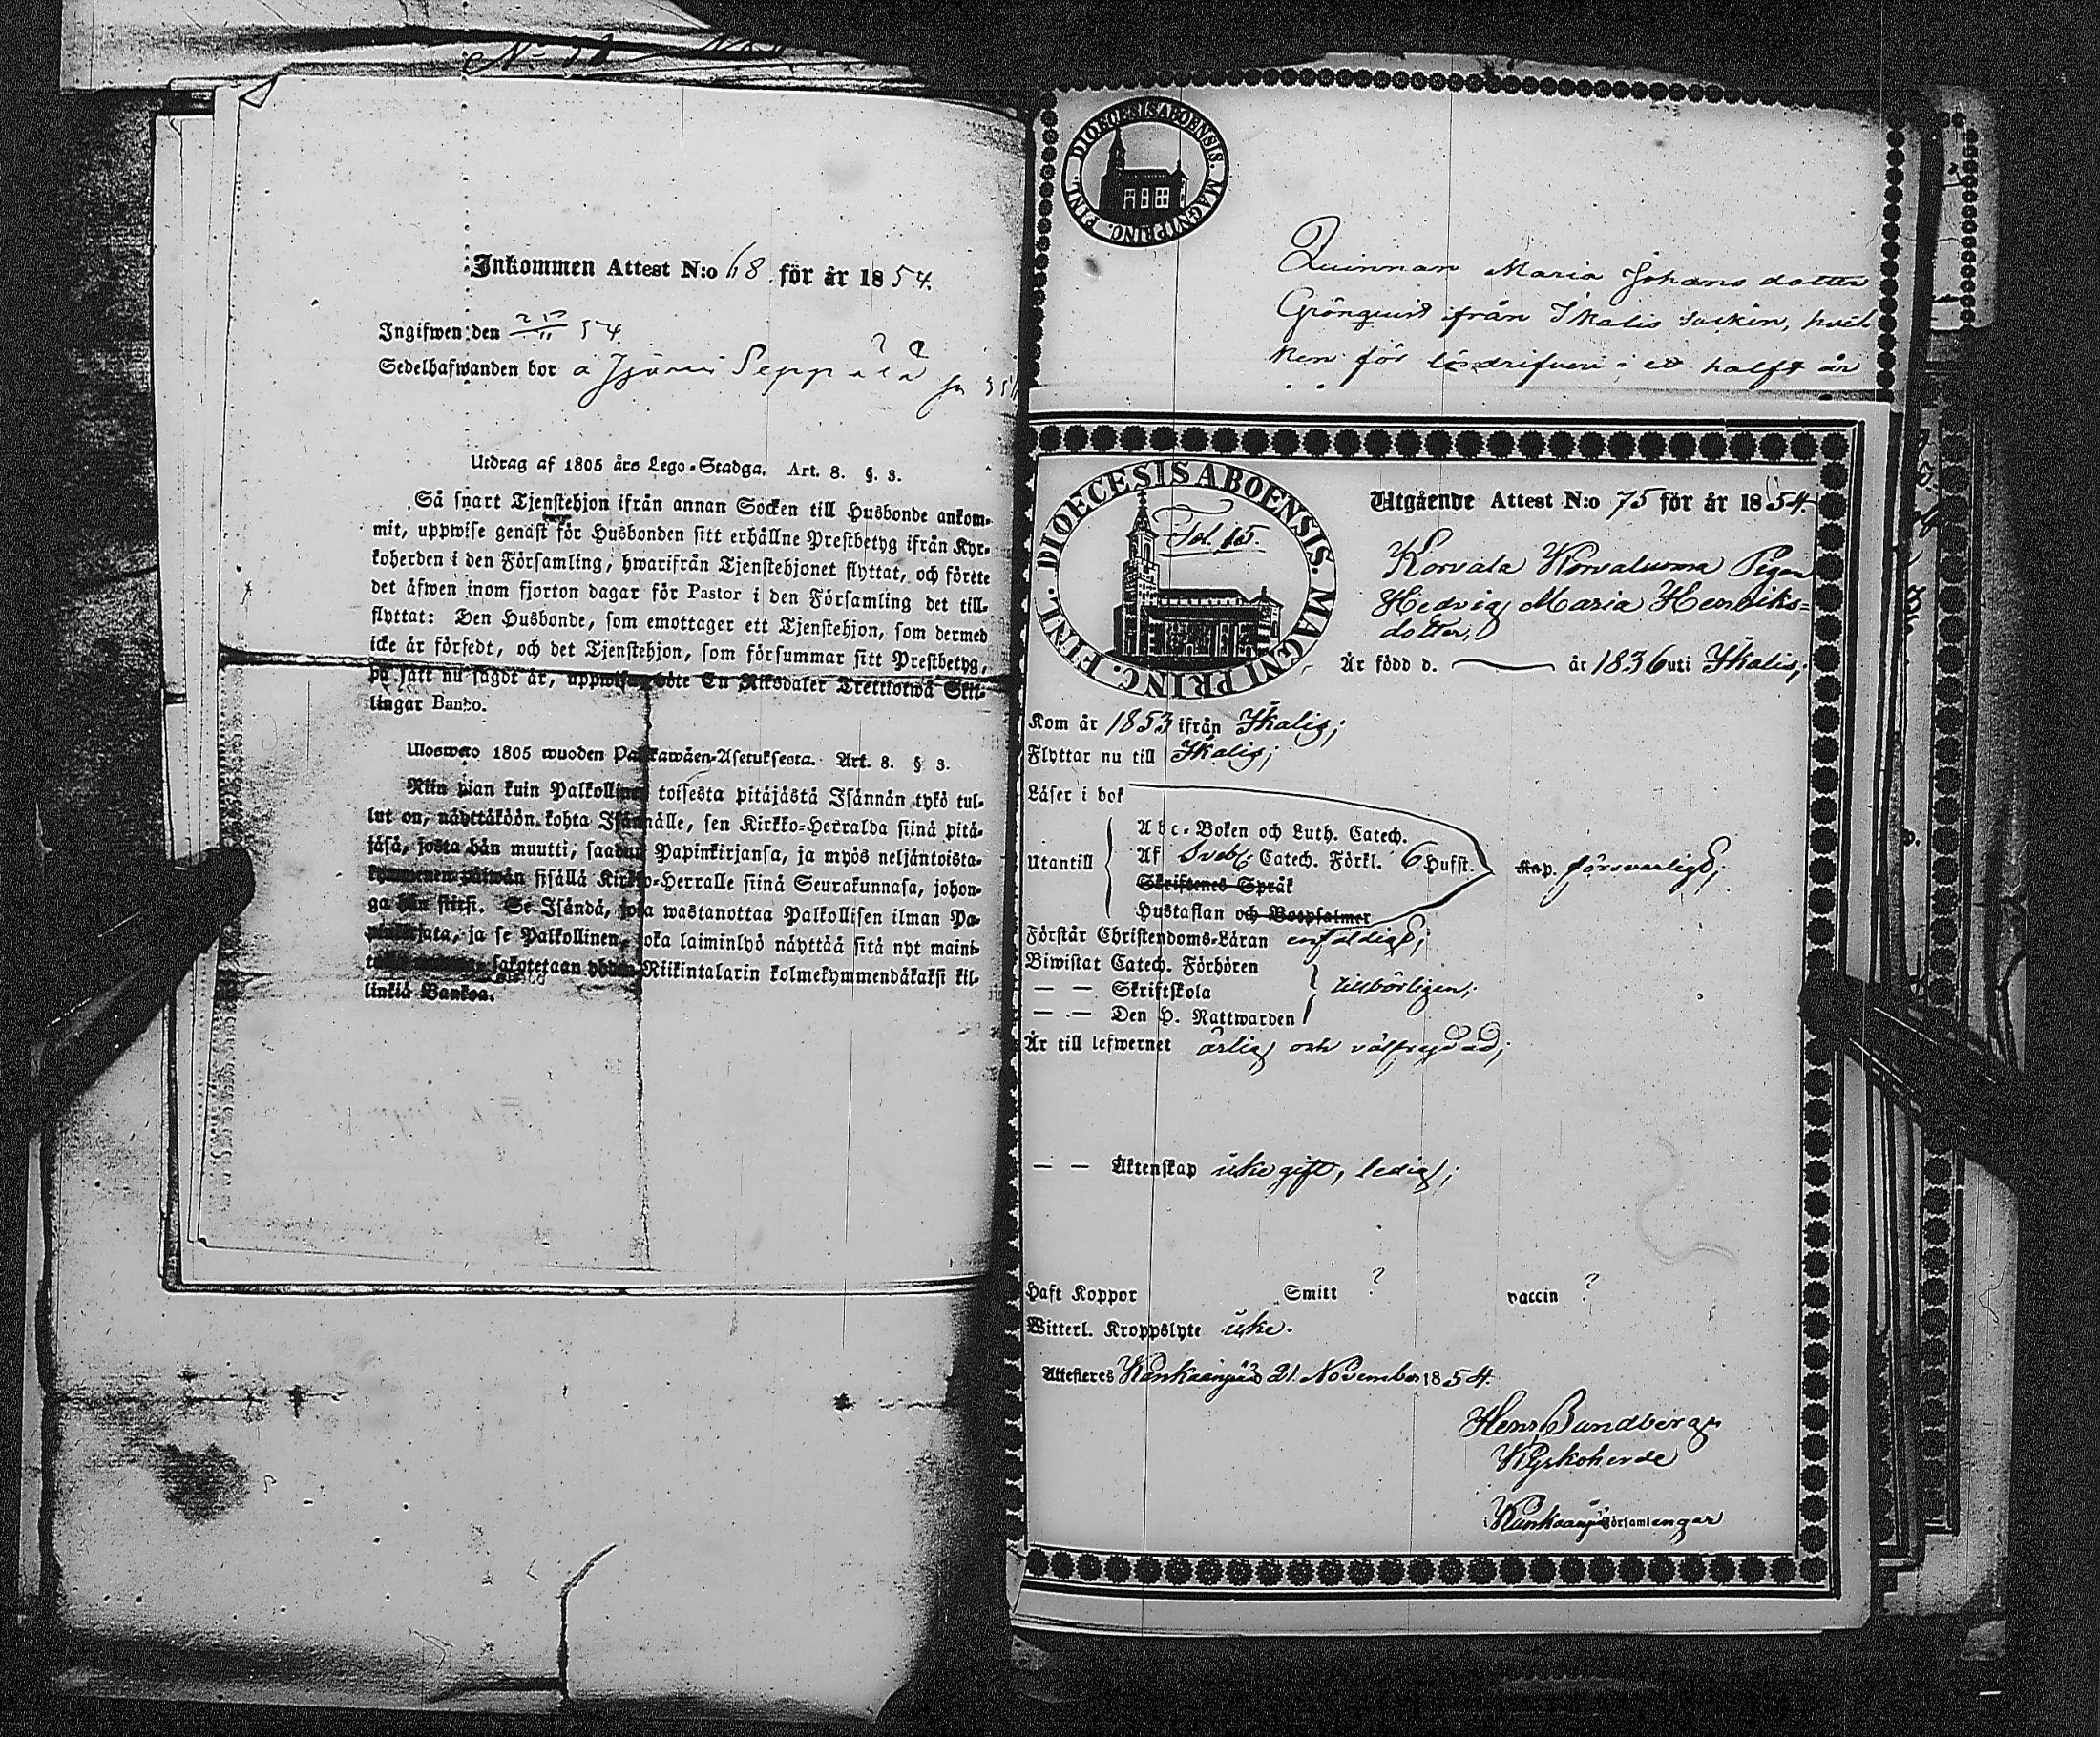 Inkommen Attest N:o 68 för år 1854.
Ingifwen den 54.
Sedelhafwanden bor å
Utdrag af 1805 års Lego-Stadga. Art. 8. §. 3.
Så snart Tjenstehjon ifrån annan Socken till Husbonde ankom-
mit, uppwise genast för Husbonden sitt erhållne Prestbetyg ifrån Kyr-
koherden i den Församling, hwarifrån Tjenstehjonet flyttat, och förete
det äfwen inom fjorton dagar för Pastor i den Församling det till-
flyttat: Den Husbonde, som emottager ett Tjenstehjon, som dermed
icke är försedt, och det Tjenstehjon, som försummar sitt Prestbetyg,
på sätt nu sagdt är, uppwisa, böte En Riksdaler Trettiotwå Skil-
lingar Banko.
Ulosweto 1805 wuoden Palkawäen-Asetuksesta. Art. 8. § 3.
Niin pian kuin Palkollinen toisesta pitäjästä Isännän tykö tul-
lut on, näyttäköön kohta Isännälle, sen Kirkko-Herralda siinä pitä-
jäsä, josta hän muutti, saadun Papinkirjansa, ja myös neljäntoista-
kymmenen päiwän sisällä Kirkko-Herralle siinä Seurakunnasa, johon-
ga hän siirsi. Se Isändä, joka wastanottaa Palkollisen ilman Pa-
pinkirjata, ja se Palkollinen, joka laiminlyö näyttää sitä nyt maini-
sakotetaan yhden Riikintalarin kolmekymmendäkaksi kil-
linkiä Bankoa.
DIOECESIS ABOENSIS. MAGNI PRINC. FINL.
Quinnan Maria Johansdotter
Grönquist ifrån Ikalis socken, hvil-
ken för lösdrifveri i ett halft år
DIOECESIS ABOENSIS. MAGNI PRINC. FINL.
Fol. 65.
Utgående Attest N:o 75 för år 1854.
Korvala Korvaluoma Pigan
Hedvig Maria Henriks-
dotter,
Är född d. — år 1836 uti Ikalis;
Kom år 1853 ifrån Ikalis;
Flyttar nu till Ikalis;
Läser i bok
Abc-Boken och Luth. Catech.
Utantill Af Sveb. Catech. Förkl. 6 Hufst. Kap. försvarligt;
Skriftenes Språk
Hustaflan och Botpsalmer
Förstår Christendoms-Läran enfaldigt;
Biwistat Catech. Förhören
— — Skriftskola tillbörligen;
— — Den H. Nattwarden
Är till lefwernet ärlig och välfrejdad;
— — Äktenskap icke gift, ledig;
Haft Koppor Smitt ? vaccin ?
Witterl. Kroppslyte icke.
Attesteres Kankaanpää 21 November 1854.
Henr. Sundberg
Kyrkoherde
i Kankaanpää Församlingar